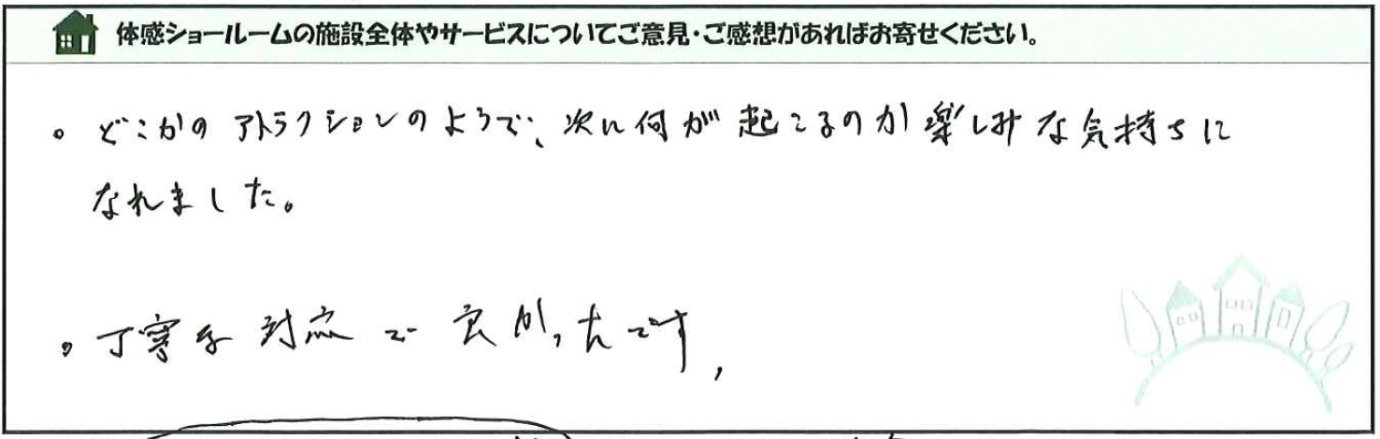 体感ショールームの施設全体やサービスについてご意見・ご感想があればお寄せください。
。どこかのアトラクションのようで、次に何が起こるのか楽しみな気持ちに
なれました。
。丁寧な対応で良かったです,